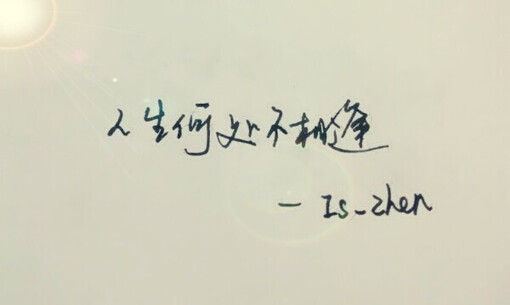 人生何处不相逢
— Is-zhen